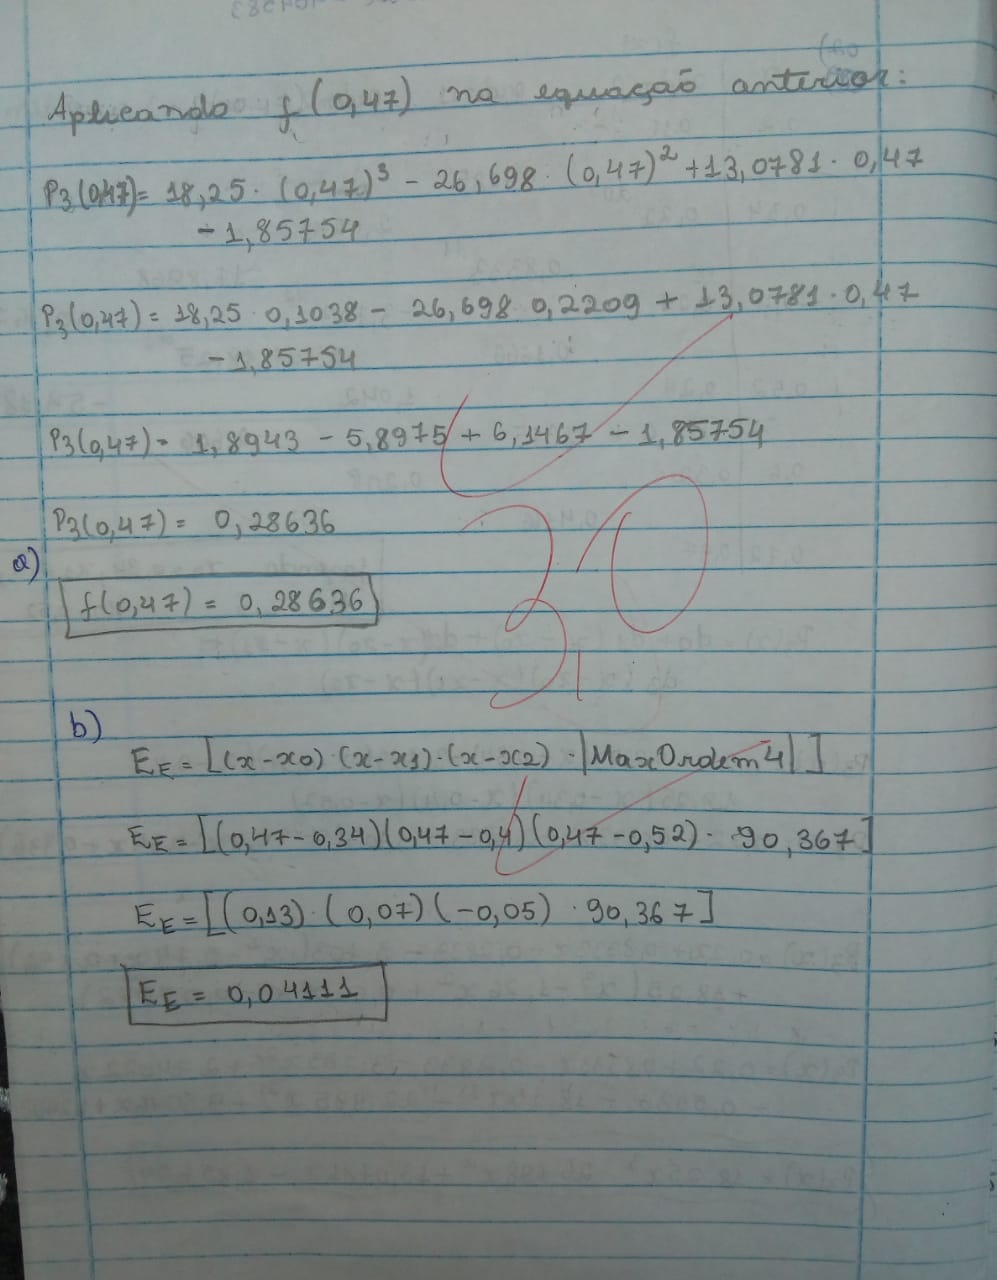 Aplicando f(0,47) na equação anterior:
P3(0,47)= 18,25 · (0,47)³ - 26,698 · (0,47)² +13,0781 · 0,47
- 1,85754
P3(0,47) = 18,25 · 0,1038 - 26,698 · 0,2209 + 13,0781 · 0,47
- 1,85754
P3(0,47) = 1,8943 - 5,8975 + 6,1467 - 1,85754
P3(0,47) = 0,28636
a)
f(0,47) = 0,28636
3,0
b)
EE = [(x-x0) · (x-x1) · (x-x2) · |MaxOrdem4|]
EE = [(0,47-0,34)(0,47-0,4)(0,47-0,52) · 90,367]
EE = [(0,13) · (0,07) (-0,05) · 90,367]
EE = 0,04111